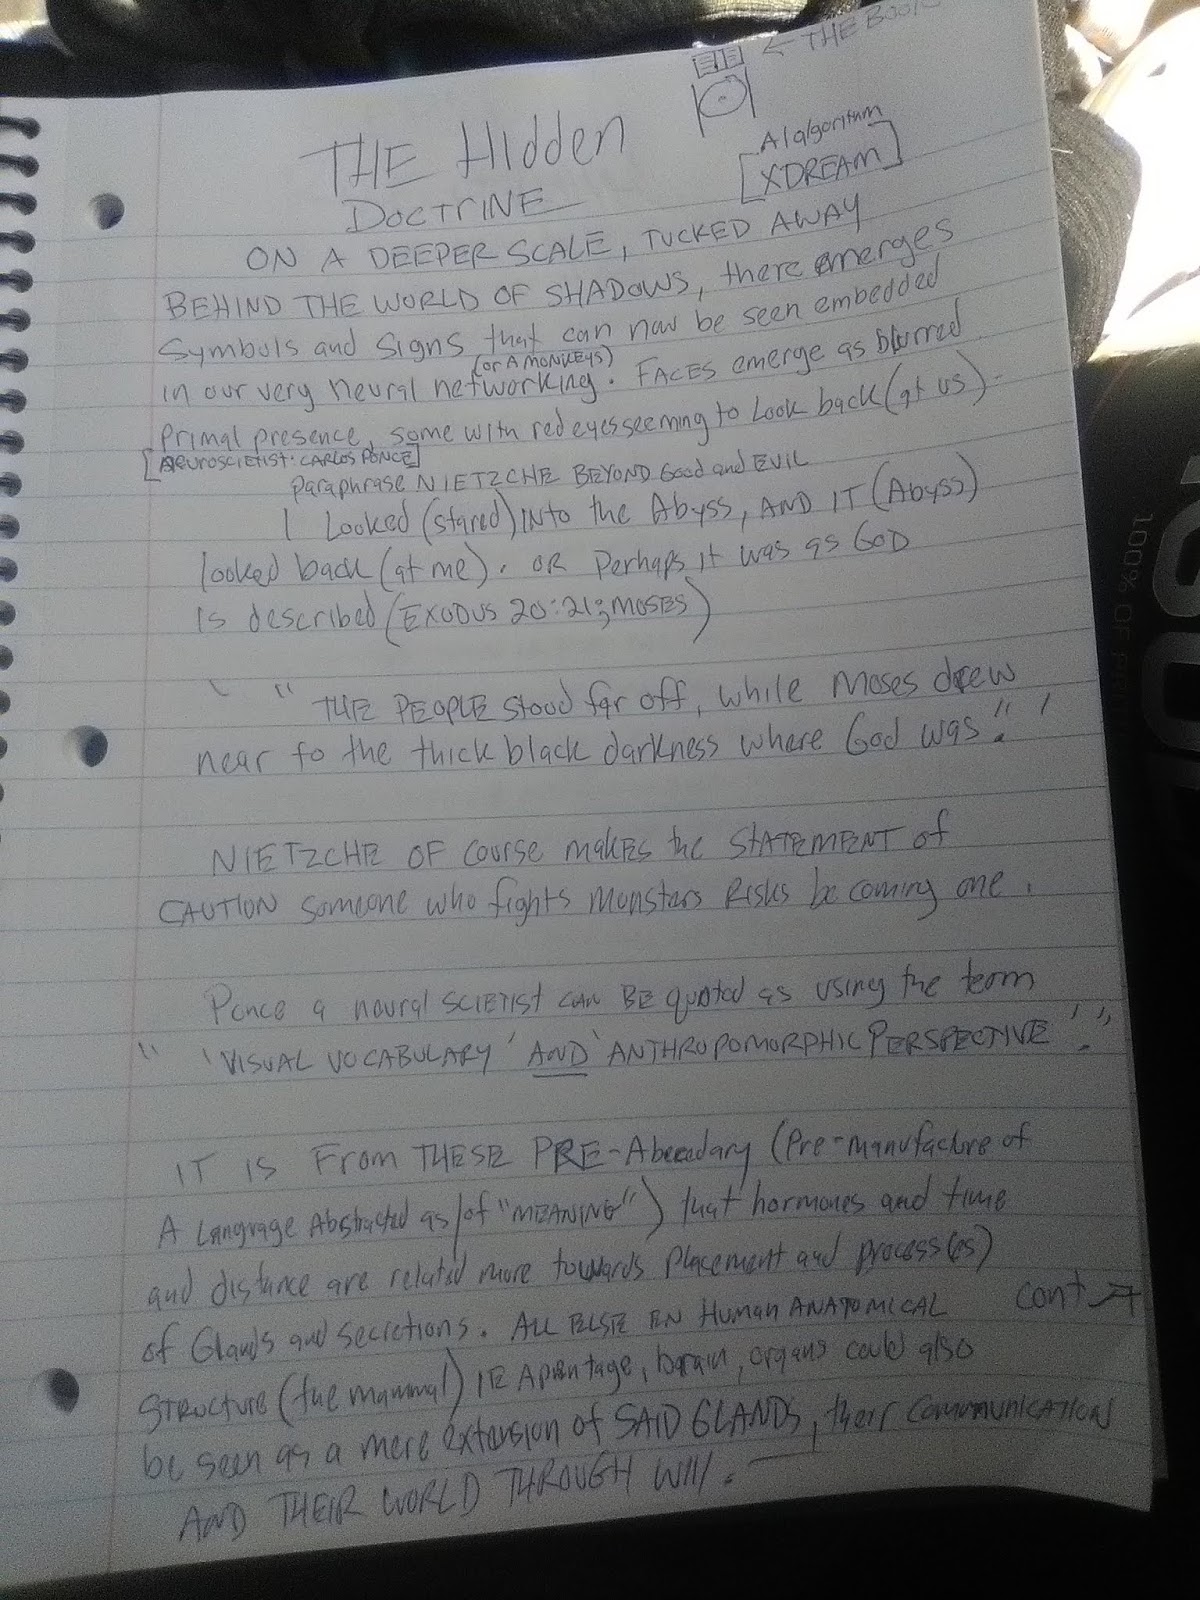 ← THE BOOK
THE HIdden
DOCTRINE
AI algorithm
[XDREAM]
ON A DEEPER SCALE, TUCKED AWAY
BEHIND THE WORLD OF SHADOWS, there emerges
Symbols and signs that can now be seen embedded
(or A MONKEYS)
in our very neural networking. FACES emerge as blurred
Primal presence, some with red eyes seeming to Look back (at us).
[NEUROSCIETIST: CARLOS PONCE]
Paraphrase NIETZCHE BEYOND Good and EVIL
I Looked (stared) INTO the Abyss, AND IT (Abyss)
looked back (at me). OR Perhaps it was as GOD
is described (EXODUS 20:21; MOSES)
' " THE PEOPLE stood far off, while Moses drew
near to the thick black darkness where God was." '
NIETZCHE OF course makes the STATEMENT of
CAUTION someone who fights Monsters Risks becoming one.
Ponce a neural SCIETIST CAN BE quoted as using the term
" 'VISUAL VOCABULARY' AND 'ANTHROPOMORPHIC PERSPECTIVE'."
IT IS From THESE PRE-Abecedary (Pre-manufacture of
A Language Abstracted as/of "MEANING") that hormones and time
and distance are related more towards Placement and process(es)
of Glands and secretions. ALL ELSE IN Human ANATOMICAL
cont
STRUCTURE (the mammal) IE brain, organs could also
be seen as a mere extension of SAID GLANDS, their COMMUNICATION
AND THEIR WORLD THROUGH Will.
100% OF